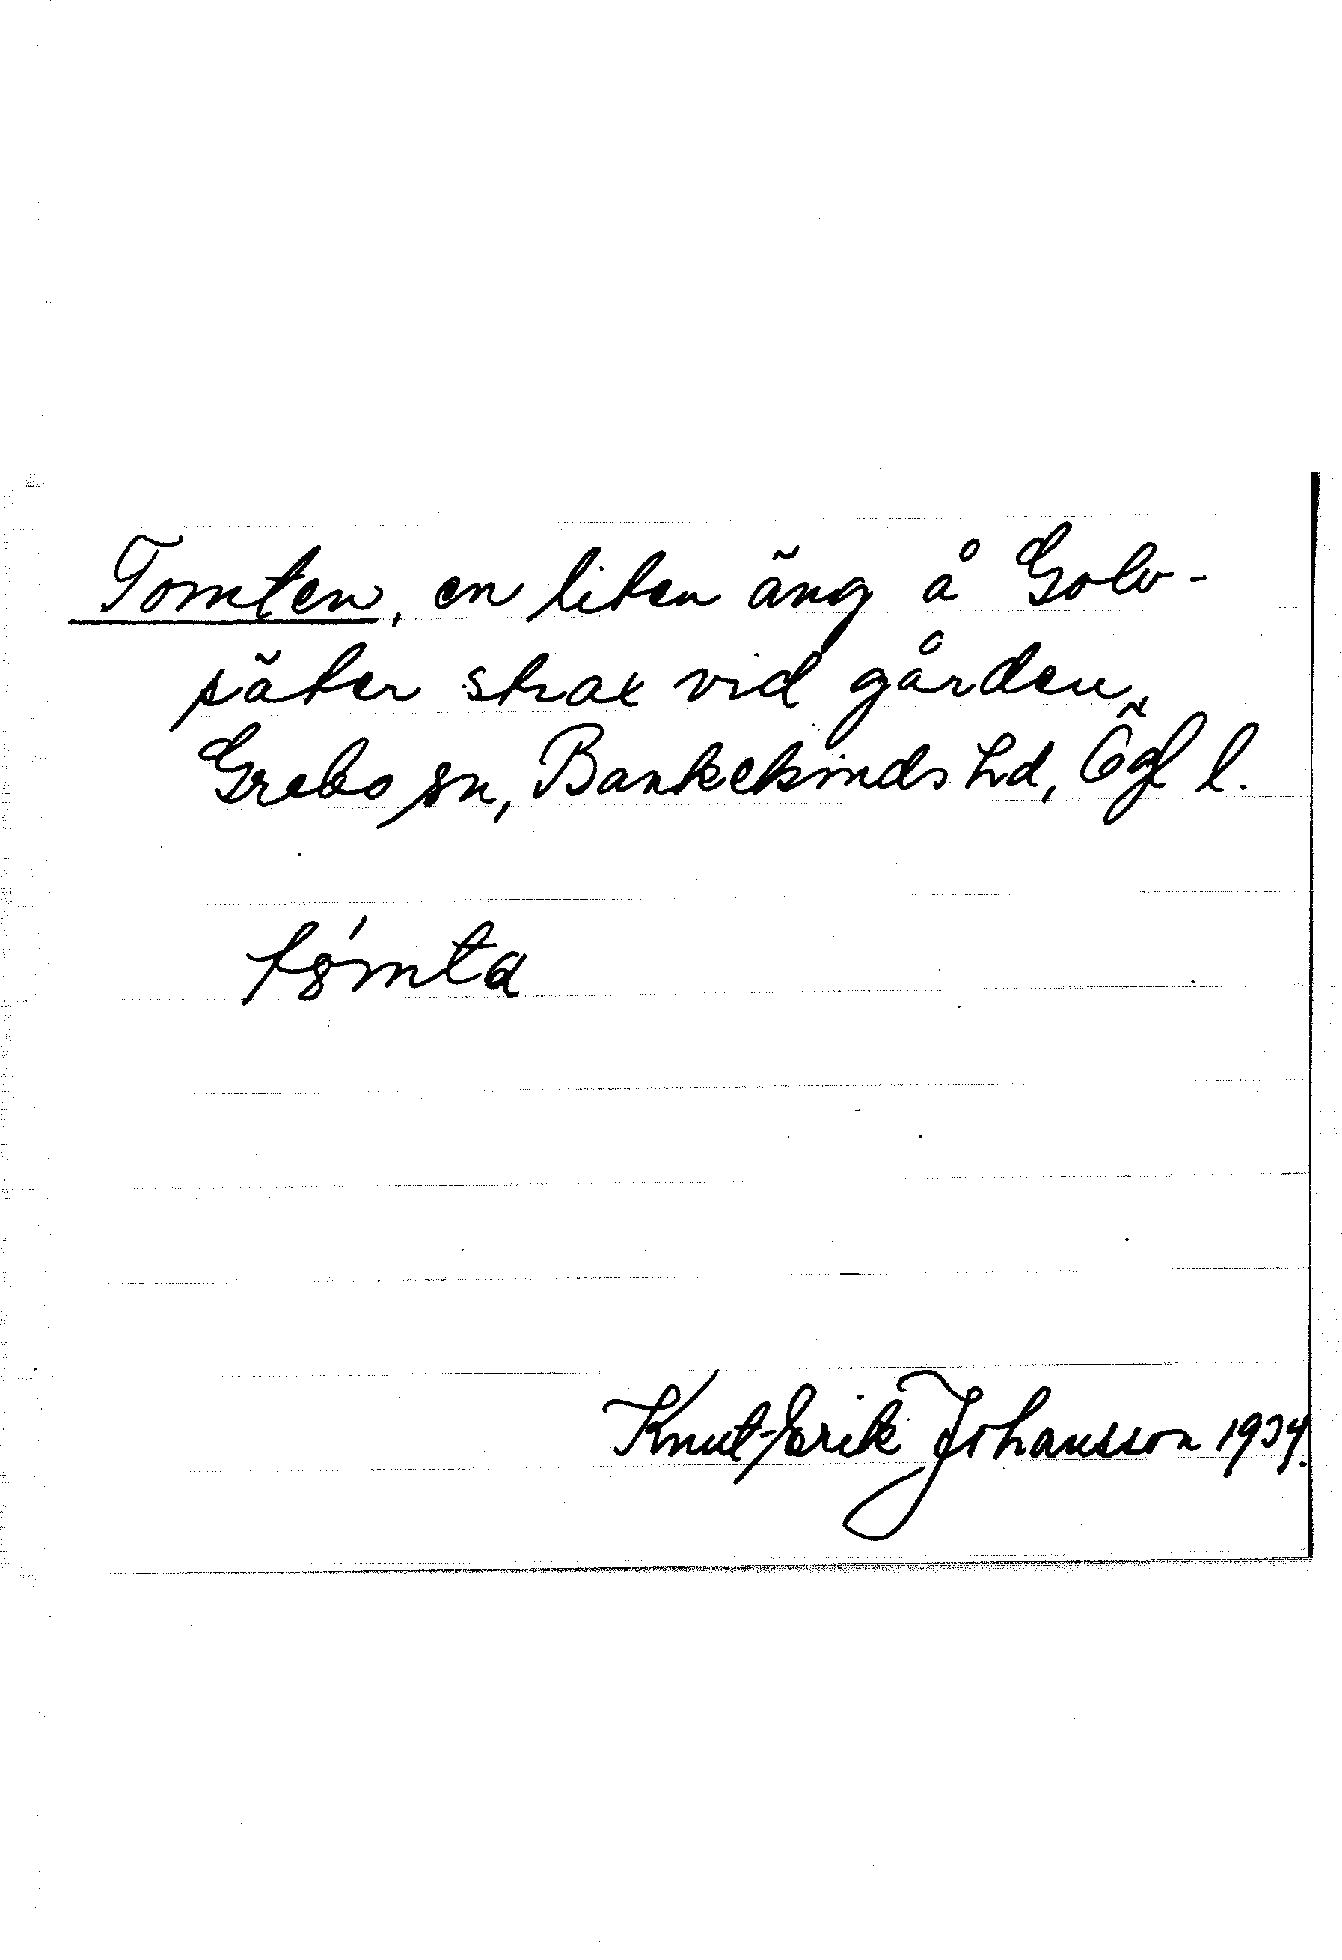 Tomten, en liten äng å Golv-
säter strax vid gården,
Grebo sn, Bankekinds hd, Ögl l.
Knut-Erik Johansson 1934.